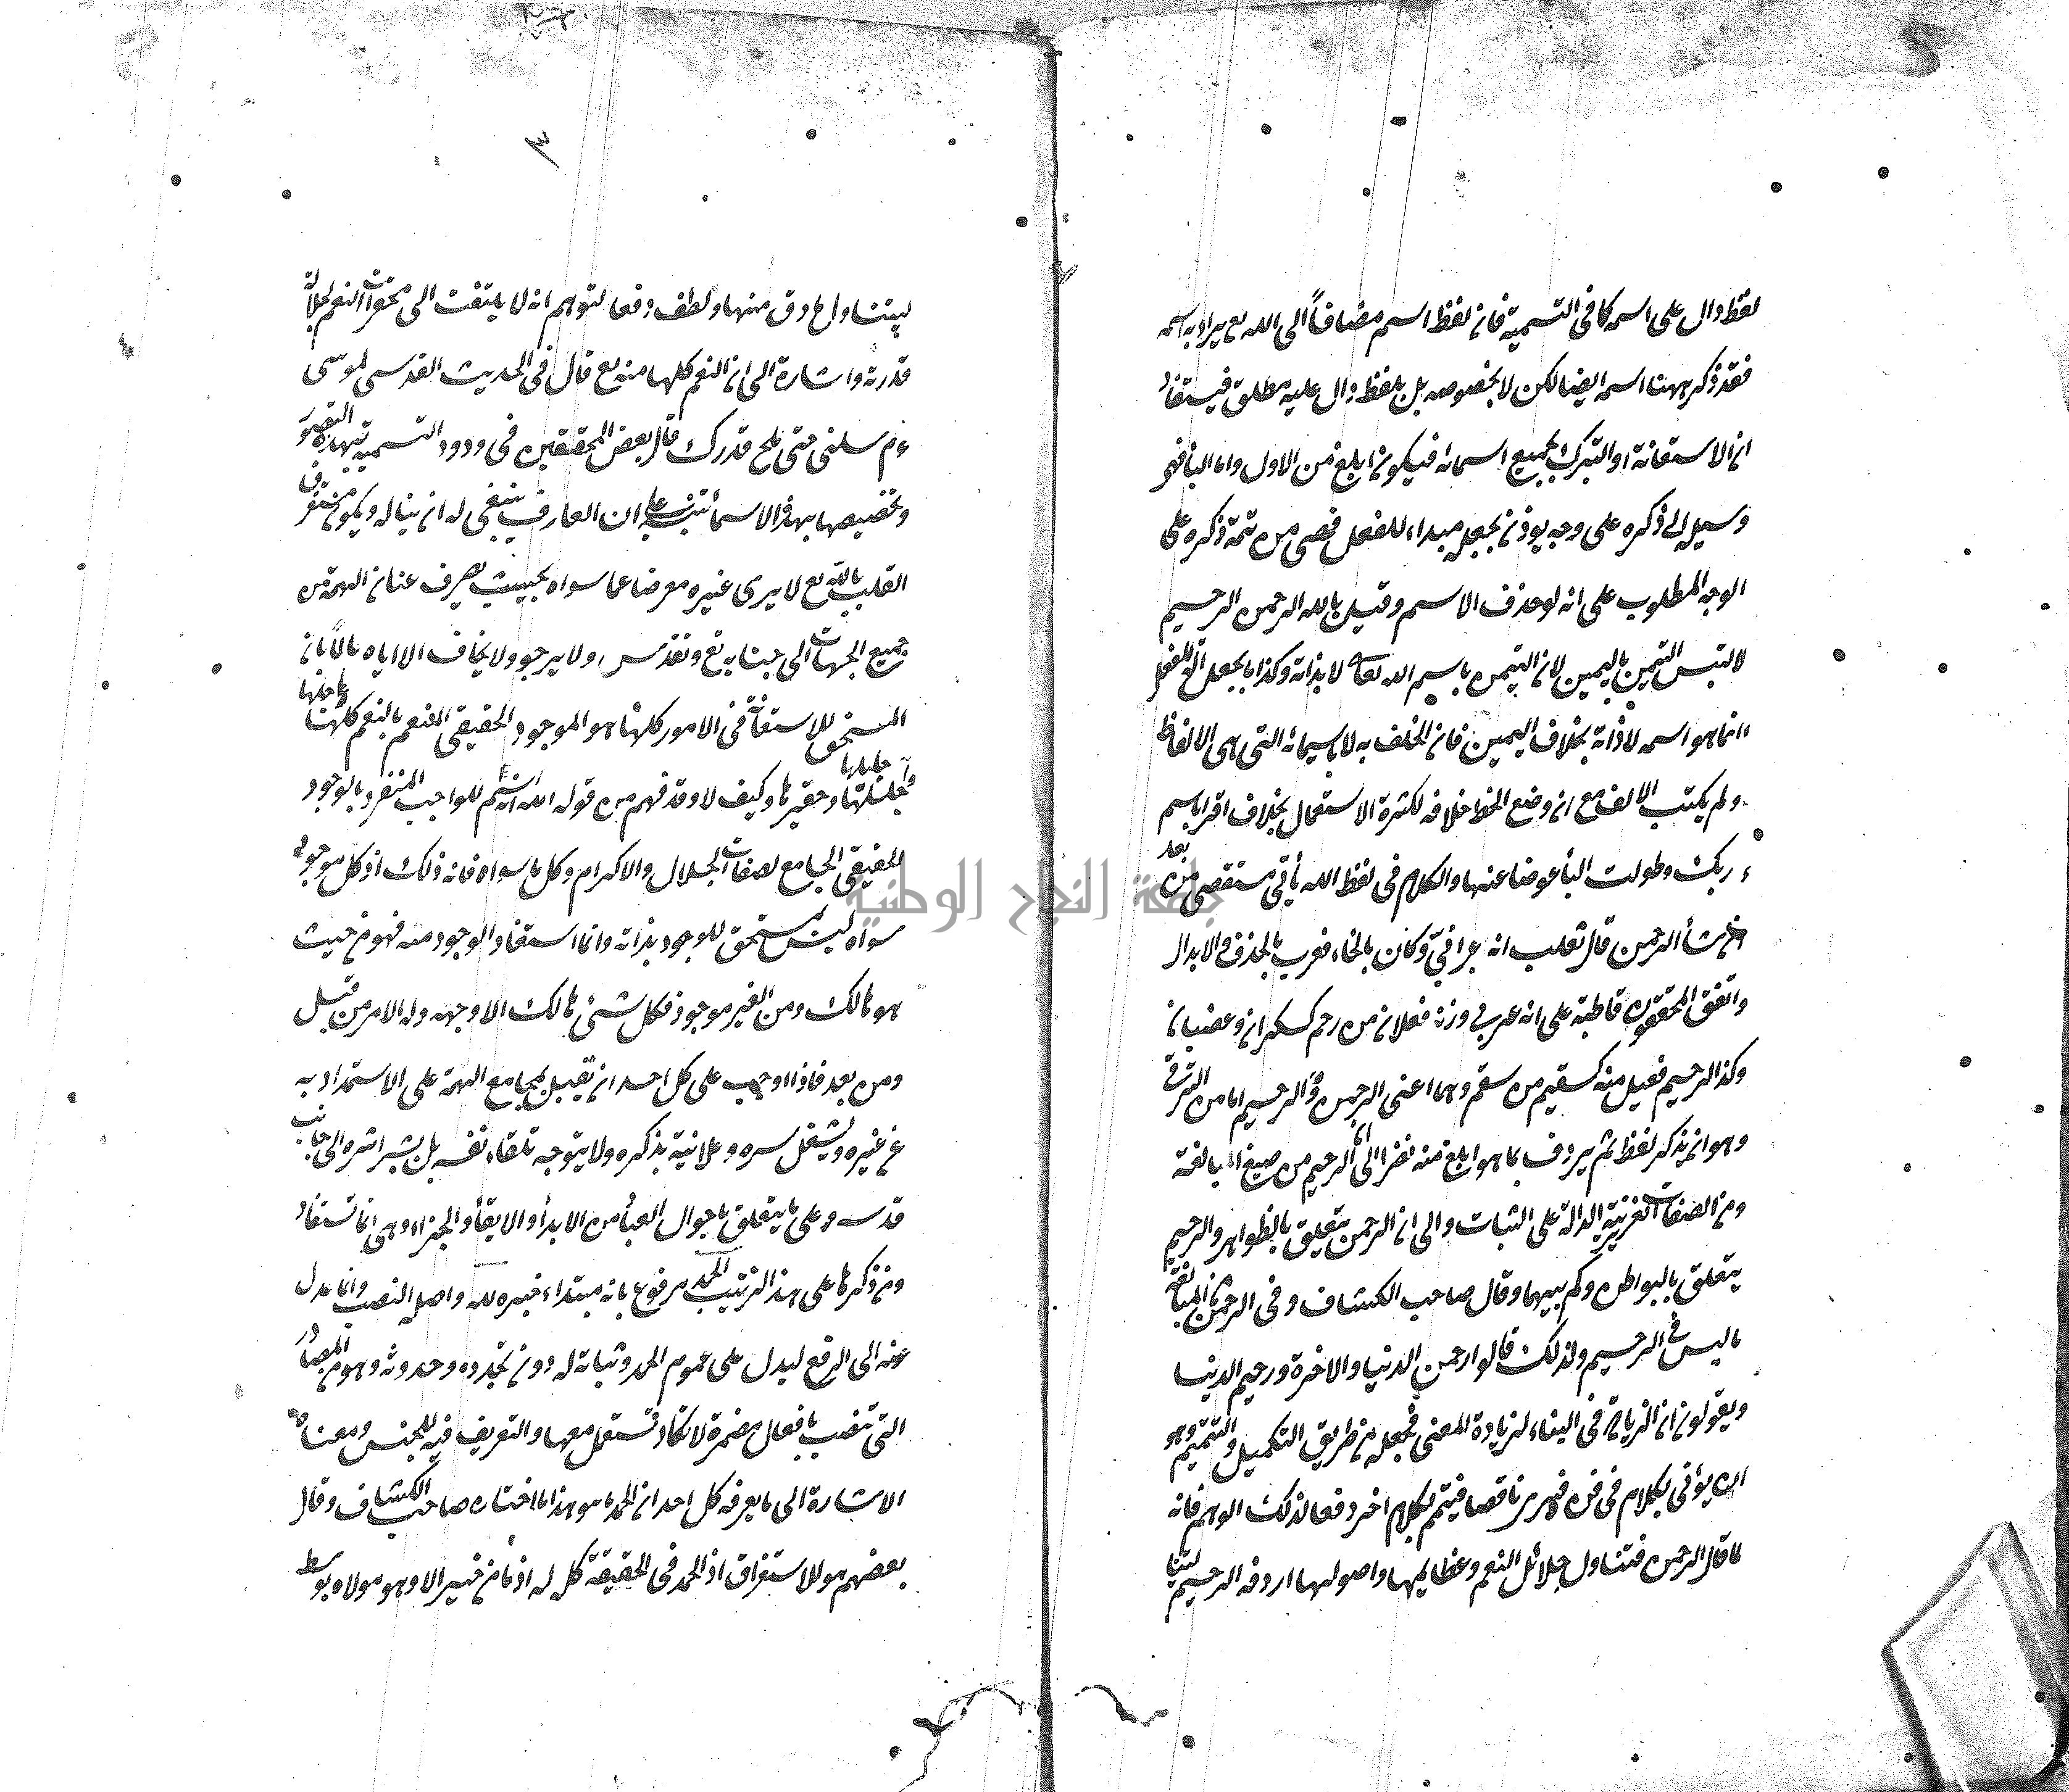 لفظ دال على اسمه كما في التسمية فان لفظ اسم مضافاً الى الله تع يراد به اسمه
فقد ذكر ههنا اسمه ايضا لكن لا بخصوصه بل بلفظ دال عليه مطلق فيستفاد
ان الاستعانة او التبرك بجميع اسمائه فيكون ابلغ من الاول واما البأ فهو
وسيلة الى ذكره على وجه يوذن بجعله مبداء للفعل فهي من تتمة ذكره على
الوجه المطلوب على انه لو حذف الاسم وقيل بالله الرحمن الرحيم
لالتبس التيمن باليمين لان التيمن باسم الله تعا لا بذاته وكذا ما يجعل آلة للفعل
انما هو اسمه لا ذاته بخلاف اليمين فان الحلف به لا باسمائه التي هي الالفاظ
ولم يكتب الالف مع ان وضع الخط خلافه لكثرة الاستعمال بخلاف اقرا باسم
ربك وطولت البأ عوضا عنها والكلام في لفظ الله يأتي مستقصى من بعد
ان شأ الرحمن قال ثعلب انه عبراني وكان بالخاء فعرب بالحذف والابدال
واتفق المحققون قاطبة على انه عربي وزنه فعلان من رحم كسكران وغضبان
وكذا الرحيم فعيل منه كسقيم من سقم وهما اعنى الرحمن والرحيم اما من الترقي
وهو ان يذكر لفظ ثم يردف بما هو ابلغ منه نظرا الى ان الرحيم من صيغ المبالغة
ومن الصفات الغريزية الدالة على الثبات والى ان الرحمن يتعلق بالظواهر والرحيم
يتعلق بالبواطن وكم بينهما وقال صاحب الكشاف وفي الرحمن من المبالغة
ما ليس في الرحيم ولذلك قالوا رحمن الدنيا والاخرة ورحيم الدنيا
ويقولون ان الزيادة في البناء لزيادة المعنى فجعله من طريق التكميل والتتميم وهو
ان يؤتى بكلام في فن فيرى ناقصا فيتمم بكلام اخر دفعا لذلك الوهم فانه
لما قال الرحمن فتناول جلائل النعم وعظايمها واصولها اردفه الرحيم لتنا
ليتناول ما دق منها ولطف دفعا لتوهم انه لا يلتفت الى محقرات النعم لجلالة
قدرته واشارة الى ان النعم كلها منه تع قال في الحديث القدسي لموسى
ءم سلني حتى ملح قدرك قال بعض المحققين في ورود التسمية بهذه الصور
وتخصيصها بهذه الاسمأ تنبيه على ان العارف ينبغي له ان يناله ويكون مستغرق
القلب بالله تع لا يرى غيره معرضا عما سواه بحيث يصرف عنان الهمة من
جميع الجهات الى جنابه تع وتقدس ولا يرجو ولا يخاف الا اياه
المستحق للاستعانة في الامور كلها هو الموجود الحقيقي المنعم بالنعم كلها عاجلها
وآجلها جليلها وحقيرها وكيف لا وقد فهم من قوله الله انه اسم للواجب المنفرد بالوجود
الحقيقي الجامع لصفات الجلال والاكرام وكل ما سواه فانه ذلك اذ كل موجود
سواه ليس بمستحق للوجود بذاته وانما استفاد الوجود منه فهو من حيث
هو هالك ومن الغير موجود فكل شئ هالك الا وجهه وله الامر من قبل
ومن بعد فاذا اوجب على كل احد ان يقبل بمجامع الهمة على الاستمداد به
عن غيره ويشغل سره وعلانيته بذكره ولا يتوجه تلقاء نفسه بل يشير اشره الى جانب
قدسه وعلى ما يتعلق باحوال العبأ من الابدأ والابقأ والجزاء وهي انما تستفاد
من ذكرها على هذا الترتيب الحمد مرفوع بانه مبتداء خبره لله واصله النصب وانما عدل
عنه الى الرفع ليدل على عموم الحمد وثباته له دون تجدده وحدوثه وهو من المصادر
التي تنصب بافعال مضمرة لا تكاد تستعمل معها والتعريف فيه للجنس ومعناه
الاشارة الى ما يعرفه كل احد ان الحمد ما هو هذا ما اختاره صاحب الكشاف وقال
بعضهم هو للاستغراق اذ الحمد في الحقيقة كل له اذ ما من خير الا وهو مولاه بوسط
جامعة النجاح الوطنية
٣